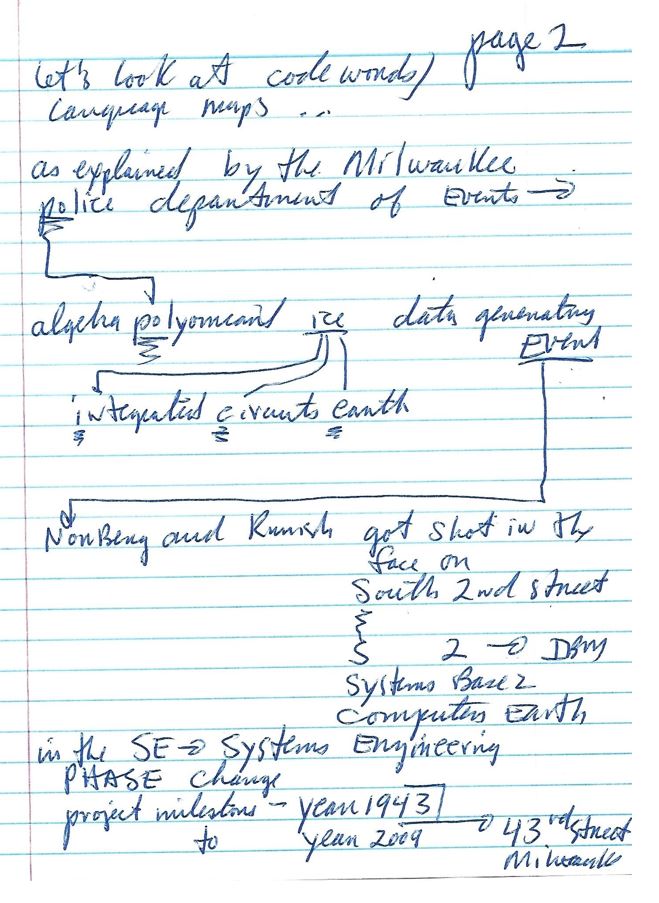 page 2
let's look at codewords/
Language maps ...
as explained by the Milwaukee
police department of Events →
algebra polyomials ice data generating
Event
integrated circuits earth
NonBeng and Kumish got shot in the
face on
South 2nd street
S 2 → IBM
Systems Base 2
Computers Earth
in the SE → Systems Engineering
PHASE change
project milestons - year 1943
to year 2009 → 43rd street
Milwauk